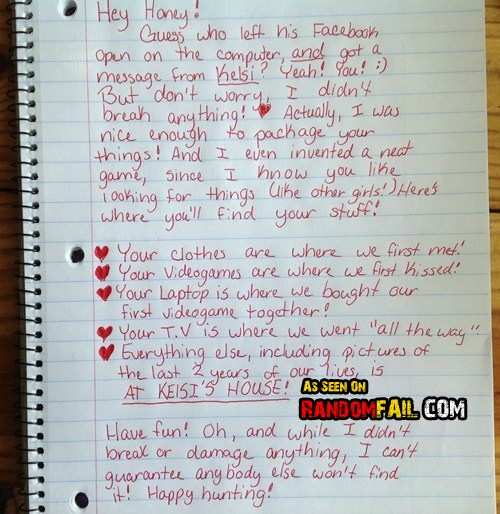 Hey Honey!
Guess who left his Facebook
open on the computer, and got a
message from Kelsi? Yeah! You! :)
But don't worry, I didn't
break anything! ♥ Actually, I was
nice enough to package your
things! And I even invented a neat
game, since I know you like
looking for things (like other girls!) Here's
where you'll find your stuff!
♥ Your clothes are where we first met!
♥ Your Videogames are where we first kissed!
♥ Your Laptop is where we bought our
first videogame together!
♥ Your T.V is where we went "all the way".
♥ Everything else, including pictures of
the last 2 years of our lives, is
AT KELSI'S HOUSE!
AS SEEN ON
RANDOMFAIL.COM
Have fun! Oh, and while I didn't
break or damage anything, I can't
guarantee anybody else won't find
it! Happy hunting!